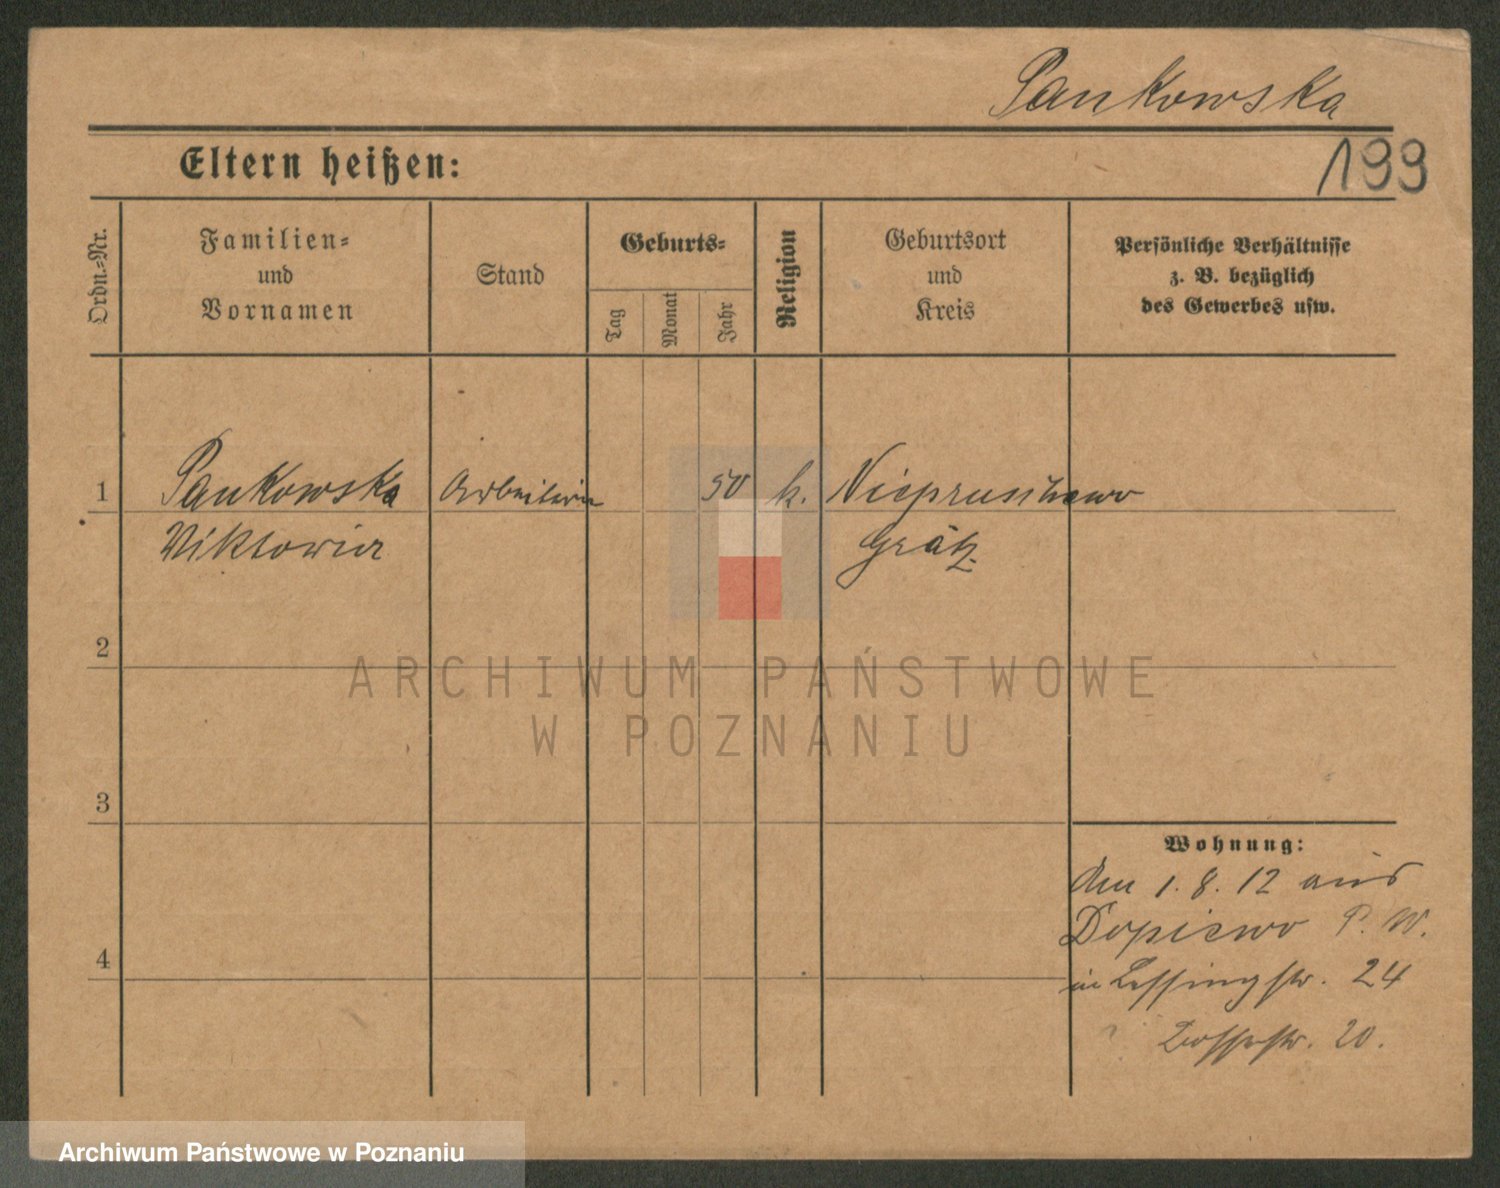 Pankowska
199
Eltern heißen:
Ordn.=Nr.
Familien=
und
Vornamen
Stand
Geburts=
Tag
Monat
Jahr
Religion
Geburtsort
und
Kreis
Persönliche Verhältnisse
z. B. bezüglich
des Gewerbes usw.
1 Pankowska Arbeiterin 50 k. Niepruschewo
Viktoria Grätz
2
3
4
Wohnung:
den 1. 8. 12 aus
Dopiewo P. W.
in Lessingstr. 24
20.
ARCHIWUM PAŃSTWOWE
W POZNANIU
Archiwum Państwowe w Poznaniu